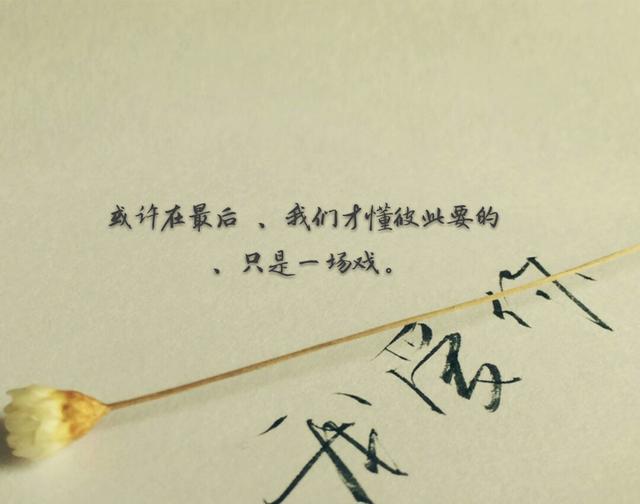 或许在最后 、我们才懂彼此要的
、只是一场戏。